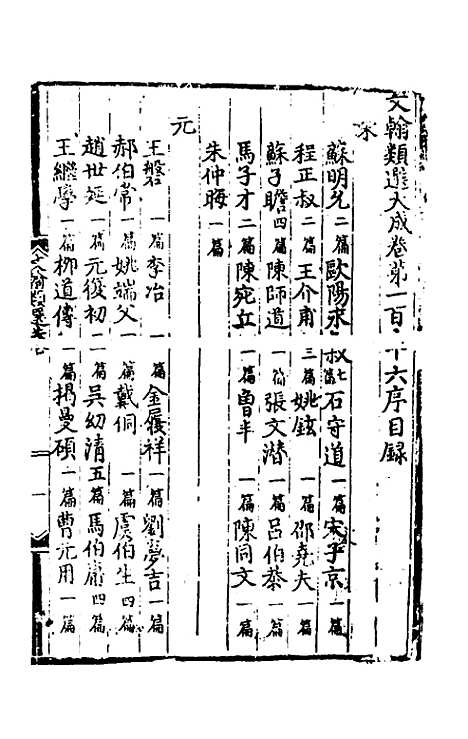 文翰類選大成卷第一百十六序目録
宋
蘇明允二篇歐陽永叔七篇石守道一篇宋子京一篇
程正叔二篇王介甫三篇姚鉉一篇邵堯夫一篇
蘇子瞻四篇陳師道一篇張文潛一篇呂伯恭一篇
馬子才二篇陳宛丘一篇曾半一篇陳同文一篇
朱仲晦一篇
元
王磐一篇李冶一篇金履祥一篇劉夢吉一篇
郝伯常一篇姚端父一篇戴侗一篇虞伯生四篇
趙世延一篇元復初二篇吳幼清五篇馬伯庸四篇
王繼學一篇柳道傳一篇揭曼碩一篇曹元用一篇